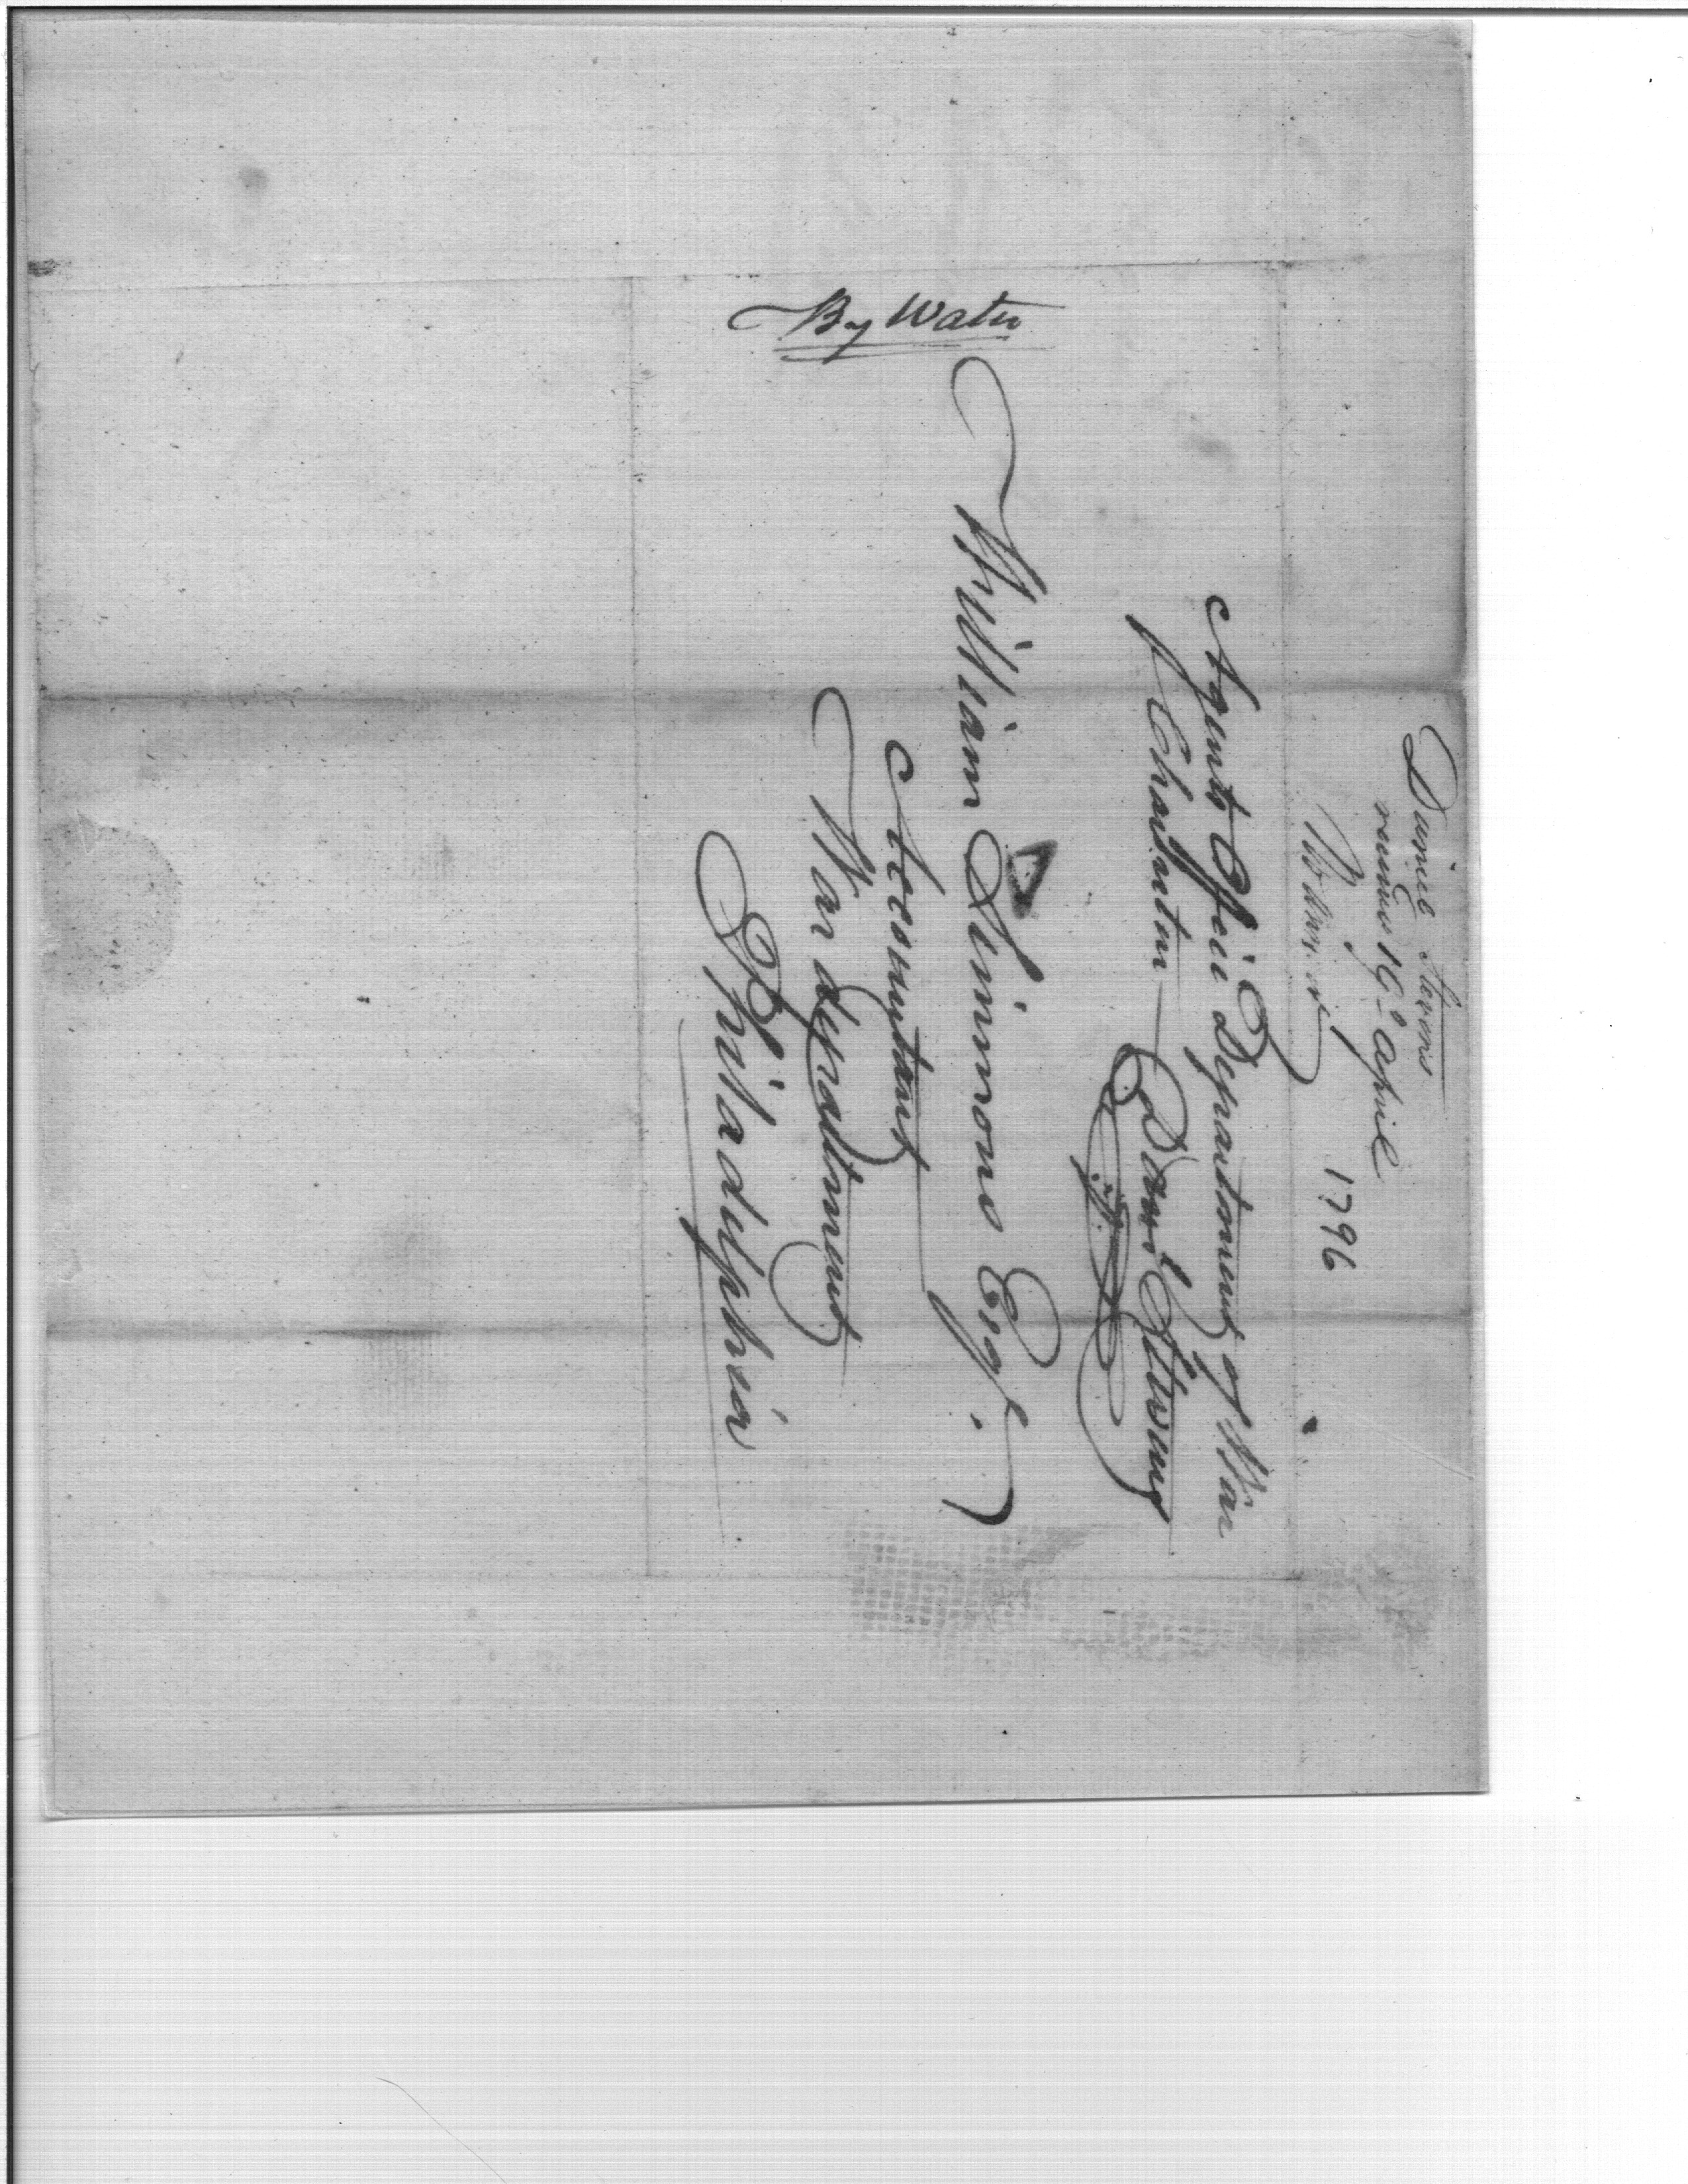 Daniel Stevens
received 19th April
1796
Agents Office Department of War
Charleston — Daniel Stevens
William Simmons Esqr.
Accountant
War department
Philadelphia
By Water